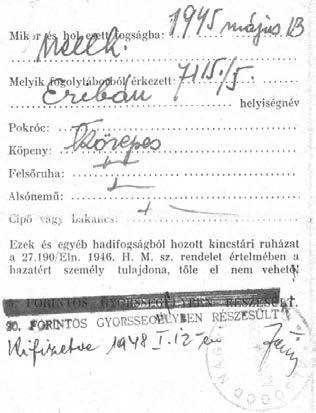 Mikor és hol esett fogságba: 1945 május 13
Melk.
Melyik fogolytáborból érkezett 7115/5.
Ereban
helyiségnév
Pokróc:
Köpeny: Közepes
Felsőruha:
Alsónemű:
Cipő vagy bakancs:
Ezek és egyéb hadifogságból hozott kincstári ruházat
a 27.190/Eln. 1946. H. M. sz. rendelet értelmében a
hazatért személy tulajdona, tőle el nem vehető!
FORINTOS GYORSSEGÉLYBEN RÉSZESÜLT.
20. FORINTOS GYORSSEGÉLYBEN RÉSZESÜLT
Kifizetve 1948 I. 12-én